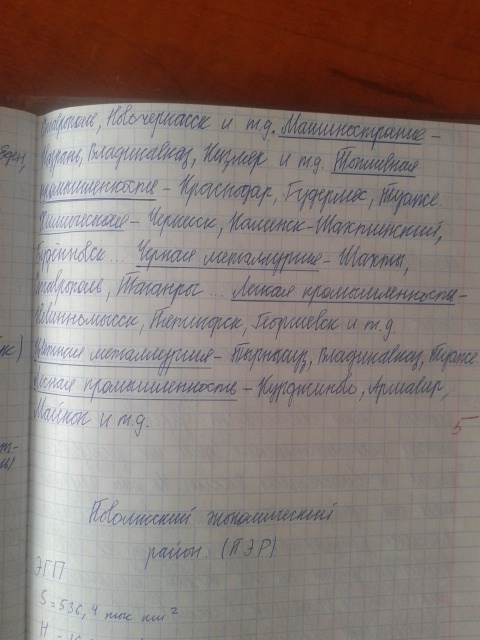 Ставрополь, Новочеркасск и т.д. Машиностроение –
Назрань, Владикавказ, Кизляр и т.д. Топливная
промышленность – Краснодар, Гудермес, Туапсе.
Химическая – Черкесск, Каменск-Шахтинский,
Будённовск... Черная металлургия – Шахты,
Ставрополь, Таганрог... Легкая промышленность –
Невинномысск, Пятигорск, Георгиевск и т.д.
Цветная металлургия – Тырныауз, Владикавказ, Туапсе
Лесная промышленность – Курджиново, Армавир,
Майкоп и т.д.
5
Поволжский экономический
район. (ПЭР)
ЭГП
S = 536,4 тыс км²
Н –